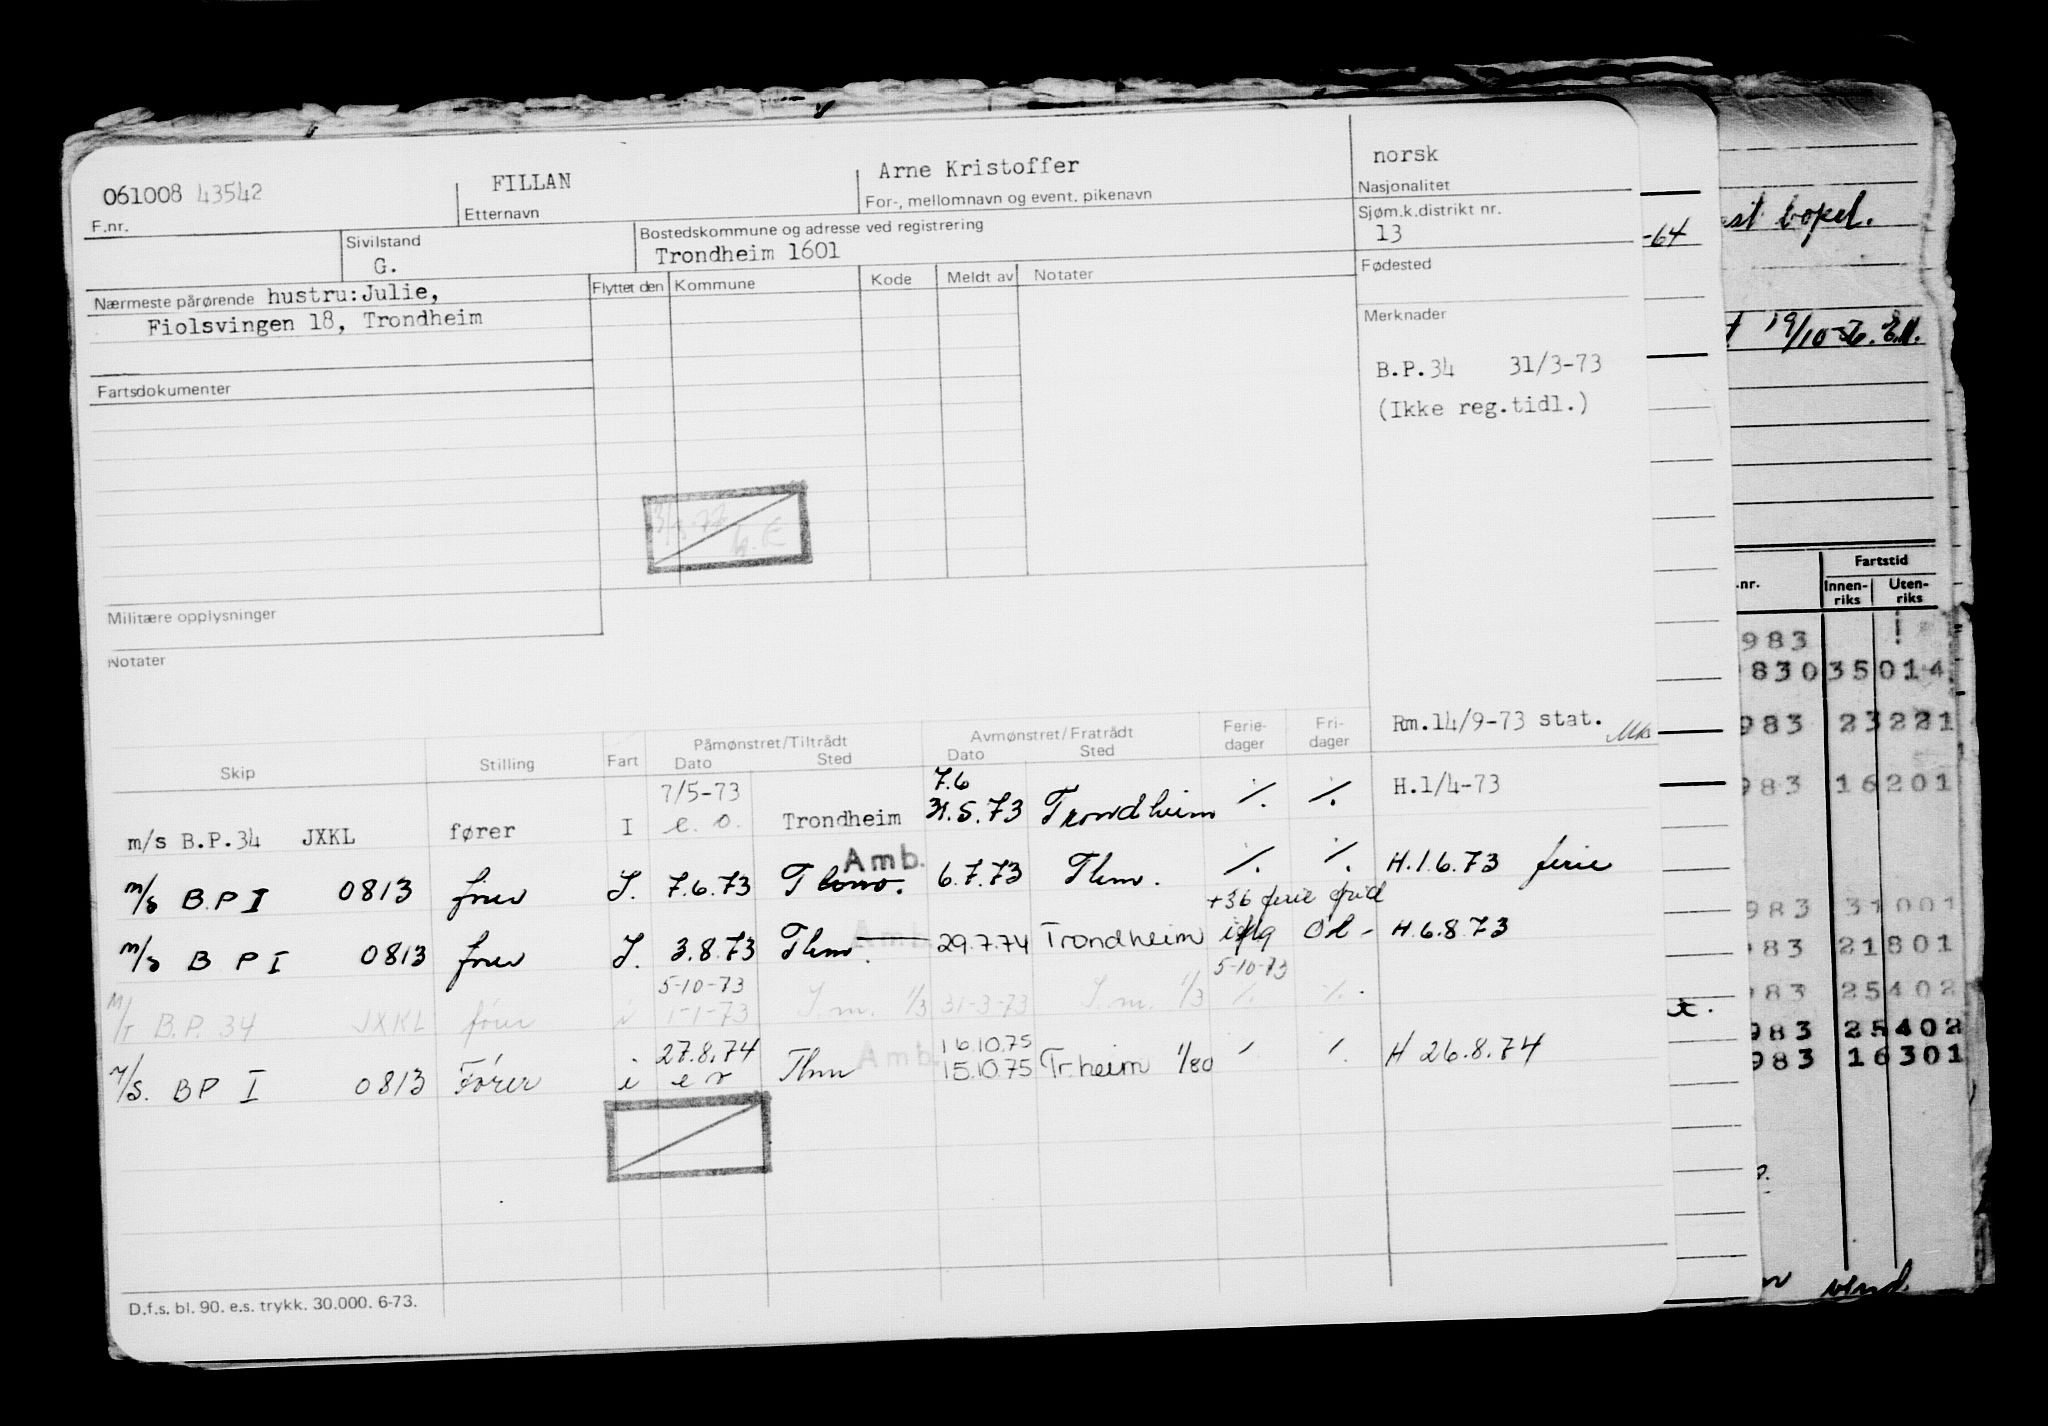 061008 43542
FILLAN
Arne Kristoffer
norsk
F.nr.
Etternavn
For-, mellomnavn og event. pikenavn
Nasjonalitet
Sivilstand
G.
Bostedskommune og adresse ved registrering
Trondheim 1601
Sjøm.k.distrikt nr.
13
Nærmeste pårørende hustru: Julie,
Fiolsvingen 18, Trondheim
Flyttet den Kommune Kode Meldt av Notater
Fødested
Merknader
B.P.34 31/3-73
(Ikke reg.tidl.)
Fartsdokumenter
Militære opplysninger
Notater
Rm.14/9-73 stat.
Skip Stilling Fart Påmønstret/Tiltrådt Dato Sted Avmønstret/Fratrådt Dato Sted Ferie-dager Fri-dager
7/5-73 7.6 H.1/4-73
m/s B.P.34 JXKL fører I e.o. Trondheim 31.5.73 Trondheim ٪ ٪
Amb.
m/s B.P I 0813 fører I. 7.6.73 6.7.73 Thm. ٪ ٪ H.1.6.73 ferie
+36 ferie frid
m/s B P I 0813 fører I. 3.8.73 Thm. Amb. 29.7.74 Trondheim H.6.8.73
5-10-73 5-10-73
M/T B.P. 34 JXKL fører i 1-1-73 S.m. 1/3 31-3-73 S.m. 1/3 ٪ ٪
27.8.74 16.10.75
M/S. BP I 0813 Fører i e r Thm Amb. 15.10.75 Tr.heim 1/80 H 26.8.74
D.f.s. bl. 90. e.s. trykk. 30.000. 6-73.
-64
bopel.
19/10-56.
.nr.
Fartstid
Innen-riks Uten-riks
983
983035014
983 23221
983 16201
983 31001
983 21801
983 25402
983 25402
983 16301